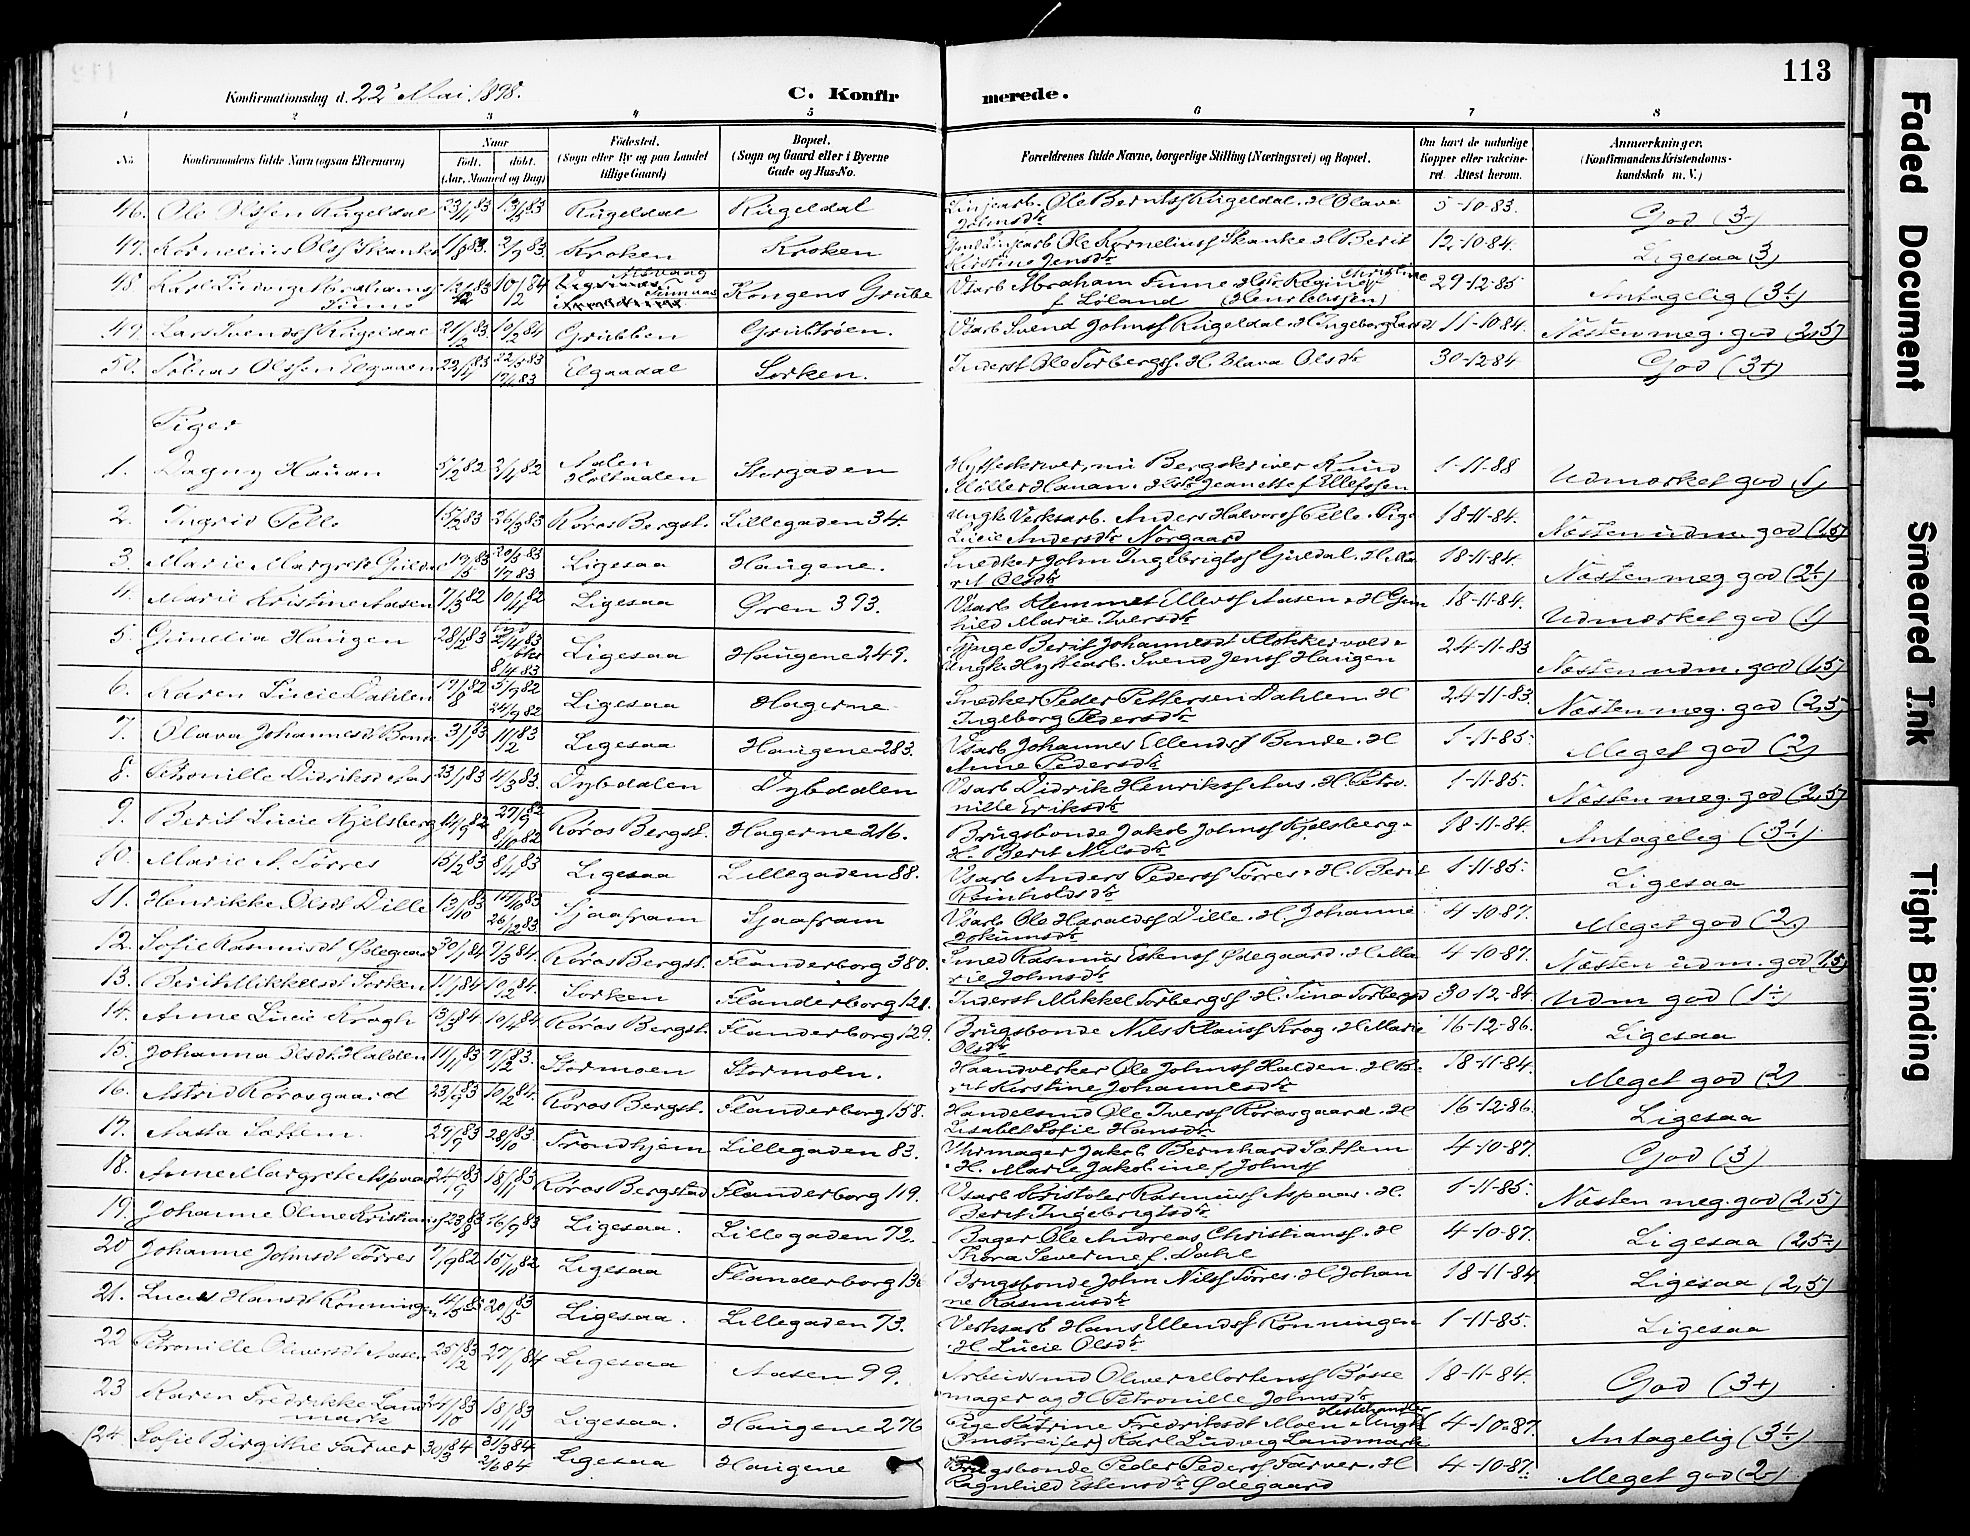 113
Konfirmationsdag d. 22' Mai 1898.
C. Konfirmerede.
1 2 3 4 5 6 7 8
No. Konfirmandens fulde Navn (ogsaa Efternavn) Naar født. døbt. (Aar, Maaned og Dag) Fødested. (Sogn eller By og paa Landet tillige Gaard) Bopæl. (Sogn og Gaard eller i Byerne Gade og Hus-No. Forældrenes fulde Navne, borgerlige Stilling (Næringsvei) og Bopæl. Om havt de naturlige Kopper eller vakcineret. Attest herom. Anmærkninger. (Konfirmandens Kristendomskundskab m. V.)
46. Ole Olsen Rugeldal Rugeldal Rugeldal 5-10-83. God (3)
47. Kornelius Kroken Kroken Ole Korneliuss Skanke H Berit Kirstine Jensdtr 12-10-84. Ligesaa (3)
48 Kongens Grube Abraham 29-12-85 Antagelig (3÷)
49. Lars Svends Rugeldal Grubben Grubrøen. Vsarb Svend Johnss Rugeldal. H Ingeborg Larsdt 11-10-84. Næsten meg. god (2,5)
50. Tobias Olssen Elgaaen Elgaadal Sørken. Inderst Ole Torbergss. H. Olava Olsdtr 30-12-84 God (3+)
Piger
1. Dagny Hauan 5/2 82 2/4 82 Aalen Holtaalen Storgaden Hytteskriver, nu Bergskriver Knud Møller Hauan. Jeanette f Ellefssen 1-11-88 Udmærket god (1)
2. Ingrid Pelle 26/3 83 Røros Bergst. Lillegaden 34. Ungk Verksarb. Anders Halvorss Pelle. Pige Lucie Andersdtr Norgaard 18-11-84. Næsten udm. god (1,5)
3. Marie Margrete 19/5 83 Ligesaa Haugene. Snedker John Ingebrigtss Guldal. H. Marit Olsdtr 18-11-84. Næsten meg god (2÷)
4. Marie Kristine Aasen 7/3 82 Ligesaa Øren 393. Vsarb Klemmet Ellevss Aasen. H Gunhild Marie Iversdtr 18-11-84. Udmærket god (1)
5. Gunelia Haugen 28/2 83 8/4 83 Ligesaa Haugene 249. Berit Johannesdt Klokkervold & Ungk. Hyttearb. Svend Jenss Haugen 24-11-83 Næsten udm. god (1,5)
6. Karen Lucie Dahlen 17/8 82 24/9 82 Ligesaa Hagerne Snedker Peder Pettersen Dahlem H Ingeborg Pedersdtr 24-11-83. Næsten meg. god (2,5)
7. Olava Johannesdt Bonde 3/1 83 11/2 83 Ligesaa Haugene 283. Vsarb Johannes Ellendss Bonde. H Anne Pedersdtr 1-11-85. Meget god (2)
8. Petronille Didriksd Aas 23/1 83 4/3 83. Dybdalen Dybdalen Vsarb Didrik Henrikss Aas. H. Petronille Eriksdtr 1-11-85. Næsten meg. god (2,5)
9. Berit Lucie Kjelsberg 14/9 82 8/10 82 Røros Bergst. Hagerne 216. Brugsbonde Jakob Johnss Kjelsberg. H. Berit Nilsdtr 18-11-84. Antagelig (3÷)
10. Marie A. Tørres 15/2 83 8/4 83 Ligesaa Lillegaden 88. Vsarb Anders Pederss Tørres. H. Berit Reinholdsdtr 1-11-85. Ligesaa
11. Henrikke Olsdt Dille 13/10 83 26/12 83 Sjaafram Sjaafram Vsarb Ole Haraldss Dille. H. Johanne Jokumsdtr 4-10-87. Meget god (2)
12. Sofie Rasmusdt Ødegaard 30/1 84 9/3 84. Røros Bergst. Flanderborg 380. Smed Rasmus Estenss Ødegaard. H Marie Johnsdtr 4-10-87. Næsten udm. god (1,5)
13. Berit Mikkelsdt Sørken 11/1 84 10/2 84. Sørken Flanderborg 121. Inderst Mikkel Torbergss H. Tina Torbergd 30-12-84 Udm god (1÷)
14. Anne Lucie Krogh 13/3 84 10/4 84. Røros Bergst. Flanderborg 129. Brugsbonde Nils Klauss Krog. H Marie Olsdtr 16-12-86. Ligesaa
15. Johanna Olsdt Halden 11/1 83 9/2 83. Stormoen Stormoen. Haandverker Ole Johnss Halden. H Berit Kerstine Johannesdtr 18-11-84. Meget god (2)
16. Astrid Rørosgaard 23/9 83 10/2 84. Røros Bergst. Flanderborg 158. Handelsmd Ole Iverss Rørosgaard. H Lisabet Sofie Hansdtr 16-12-86. Ligesaa
17. Aasta Sættem. 29/9 83 28/10 83. Trondhjem Lillegaden 83. Uhrmager Jakob Bernhard Sættem H. Marie Jakobine f Johnss 4-10-87. God (3)
18. Anne Margrete Aspaas 24/9 83 18/11 83. Røros Bergstad Flanderborg 119. Vsarb Kristofer Rasmuss Aspaas. H. Berit Ingebrigtsdtr 1-11-85. Næsten meg. god (2,5)
19. Johanne Oline Kristians 23/8 83 16/9 83 Ligesaa. Lillegaden 72. Bager Ole Andreas Christianss. H Thora Severine f. Dahl 4-10-87. Ligesaa (2,5÷)
20 Johanne Johnsdt Tørres 7/9 82 15/10 82. Ligesaa Flanderborg 136 Brugsbonde John Nilss Tørres. H Johanne Rasmusdtr 18-11-84 Ligesaa (2,5)
21. Lucie Hansdt Rønningen 20/5 83 Ligesaa. Lillegaden 73. Verksarb Hans Ellendss Rønningen H Lucie Olsdtr 1-11-85. Ligesaa
22 Petronille Oliversdt Aasen 25/2 83 27/1 84 Ligesaa Aasen 99. Arbeidsmd Oliver Mortenss Bøssemager og H Petronille Johnsdtr 18-11-84. God (3+)
23 Karen Fredrikke Landmark 24/10 83 18/11 83 Ligesaa. Haugene 276 Pige Katrine Fredriksdt Moen & Ungk Hestehandler (Omstreifer) Karl Ludvig Landmark 4-10-87. Antagelig (3÷)
24 Sofie Birgithe Farver 30/3 84 2/6 84 Ligesaa Haugene Brugsbonde Peder Pederss Farver. H Ragnhild Estensdtr Ødegaard 4-10-87. Meget god (2)
Faded Document
Smeared Ink
Tight Binding